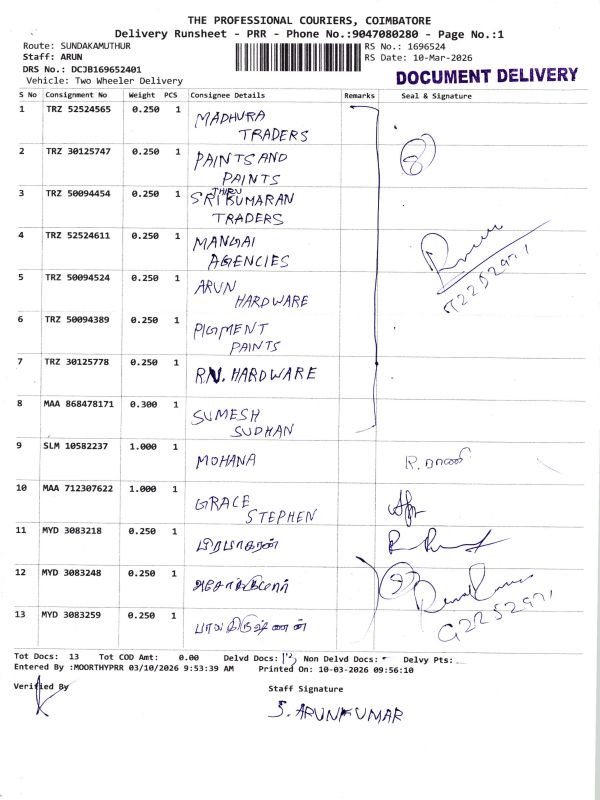 THE PROFESSIONAL COURIERS, COIMBATORE
Delivery Runsheet - PRR - Phone No.:9047080280 - Page No.:1
Route: SUNDAKAMUTHUR
RS No.: 1696524
Staff: ARUN
RS Date: 10-Mar-2026
DRS No.: DCJB169652401
Vehicle: Two Wheeler Delivery
DOCUMENT DELIVERY
S No Consignment No Weight PCS Consignee Details Remarks Seal & Signature
1 TRZ 52524565 0.250 1 MADHURA
TRADERS
2 TRZ 30125747 0.250 1 PAINTS AND
PAINTS
8
3 TRZ 50094454 0.250 1 SRI THIRU KUMARAN
TRADERS
4 TRZ 52524611 0.250 1 MANGAI
AGENCIES
5 TRZ 50094524 0.250 1 ARUN
HARDWARE
6 TRZ 50094389 0.250 1 PIGMENT
PAINTS
7 TRZ 30125778 0.250 1 R.N. HARDWARE
8 MAA 868478171 0.300 1 SUMESH
SUDHAN
9 SLM 10582237 1.000 1 MOHANA R. ராணி
10 MAA 712307622 1.000 1 GRACE
STEPHEN
11 MYD 3083218 0.250 1 பிரபாகரன்
12 MYD 3083248 0.250 1 அசோக்குமார்
13 MYD 3083259 0.250 1 பாலகிருஷ்ணன்
Tot Docs: 13 Tot COD Amt: 0.00 Delvd Docs: 13 Non Delvd Docs: - Delvy Pts:
Entered By :MOORTHYPRR 03/10/2026 9:53:39 AM Printed On: 10-03-2026 09:56:10
Verified By Staff Signature
S. ARUNKUMAR